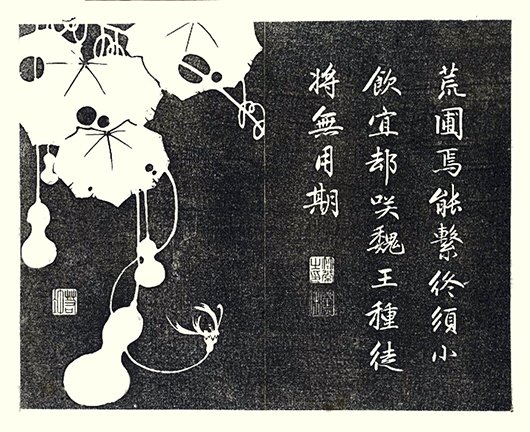 荒圃焉能繫終須小
飲宜却咲魏王種徒
将無用期